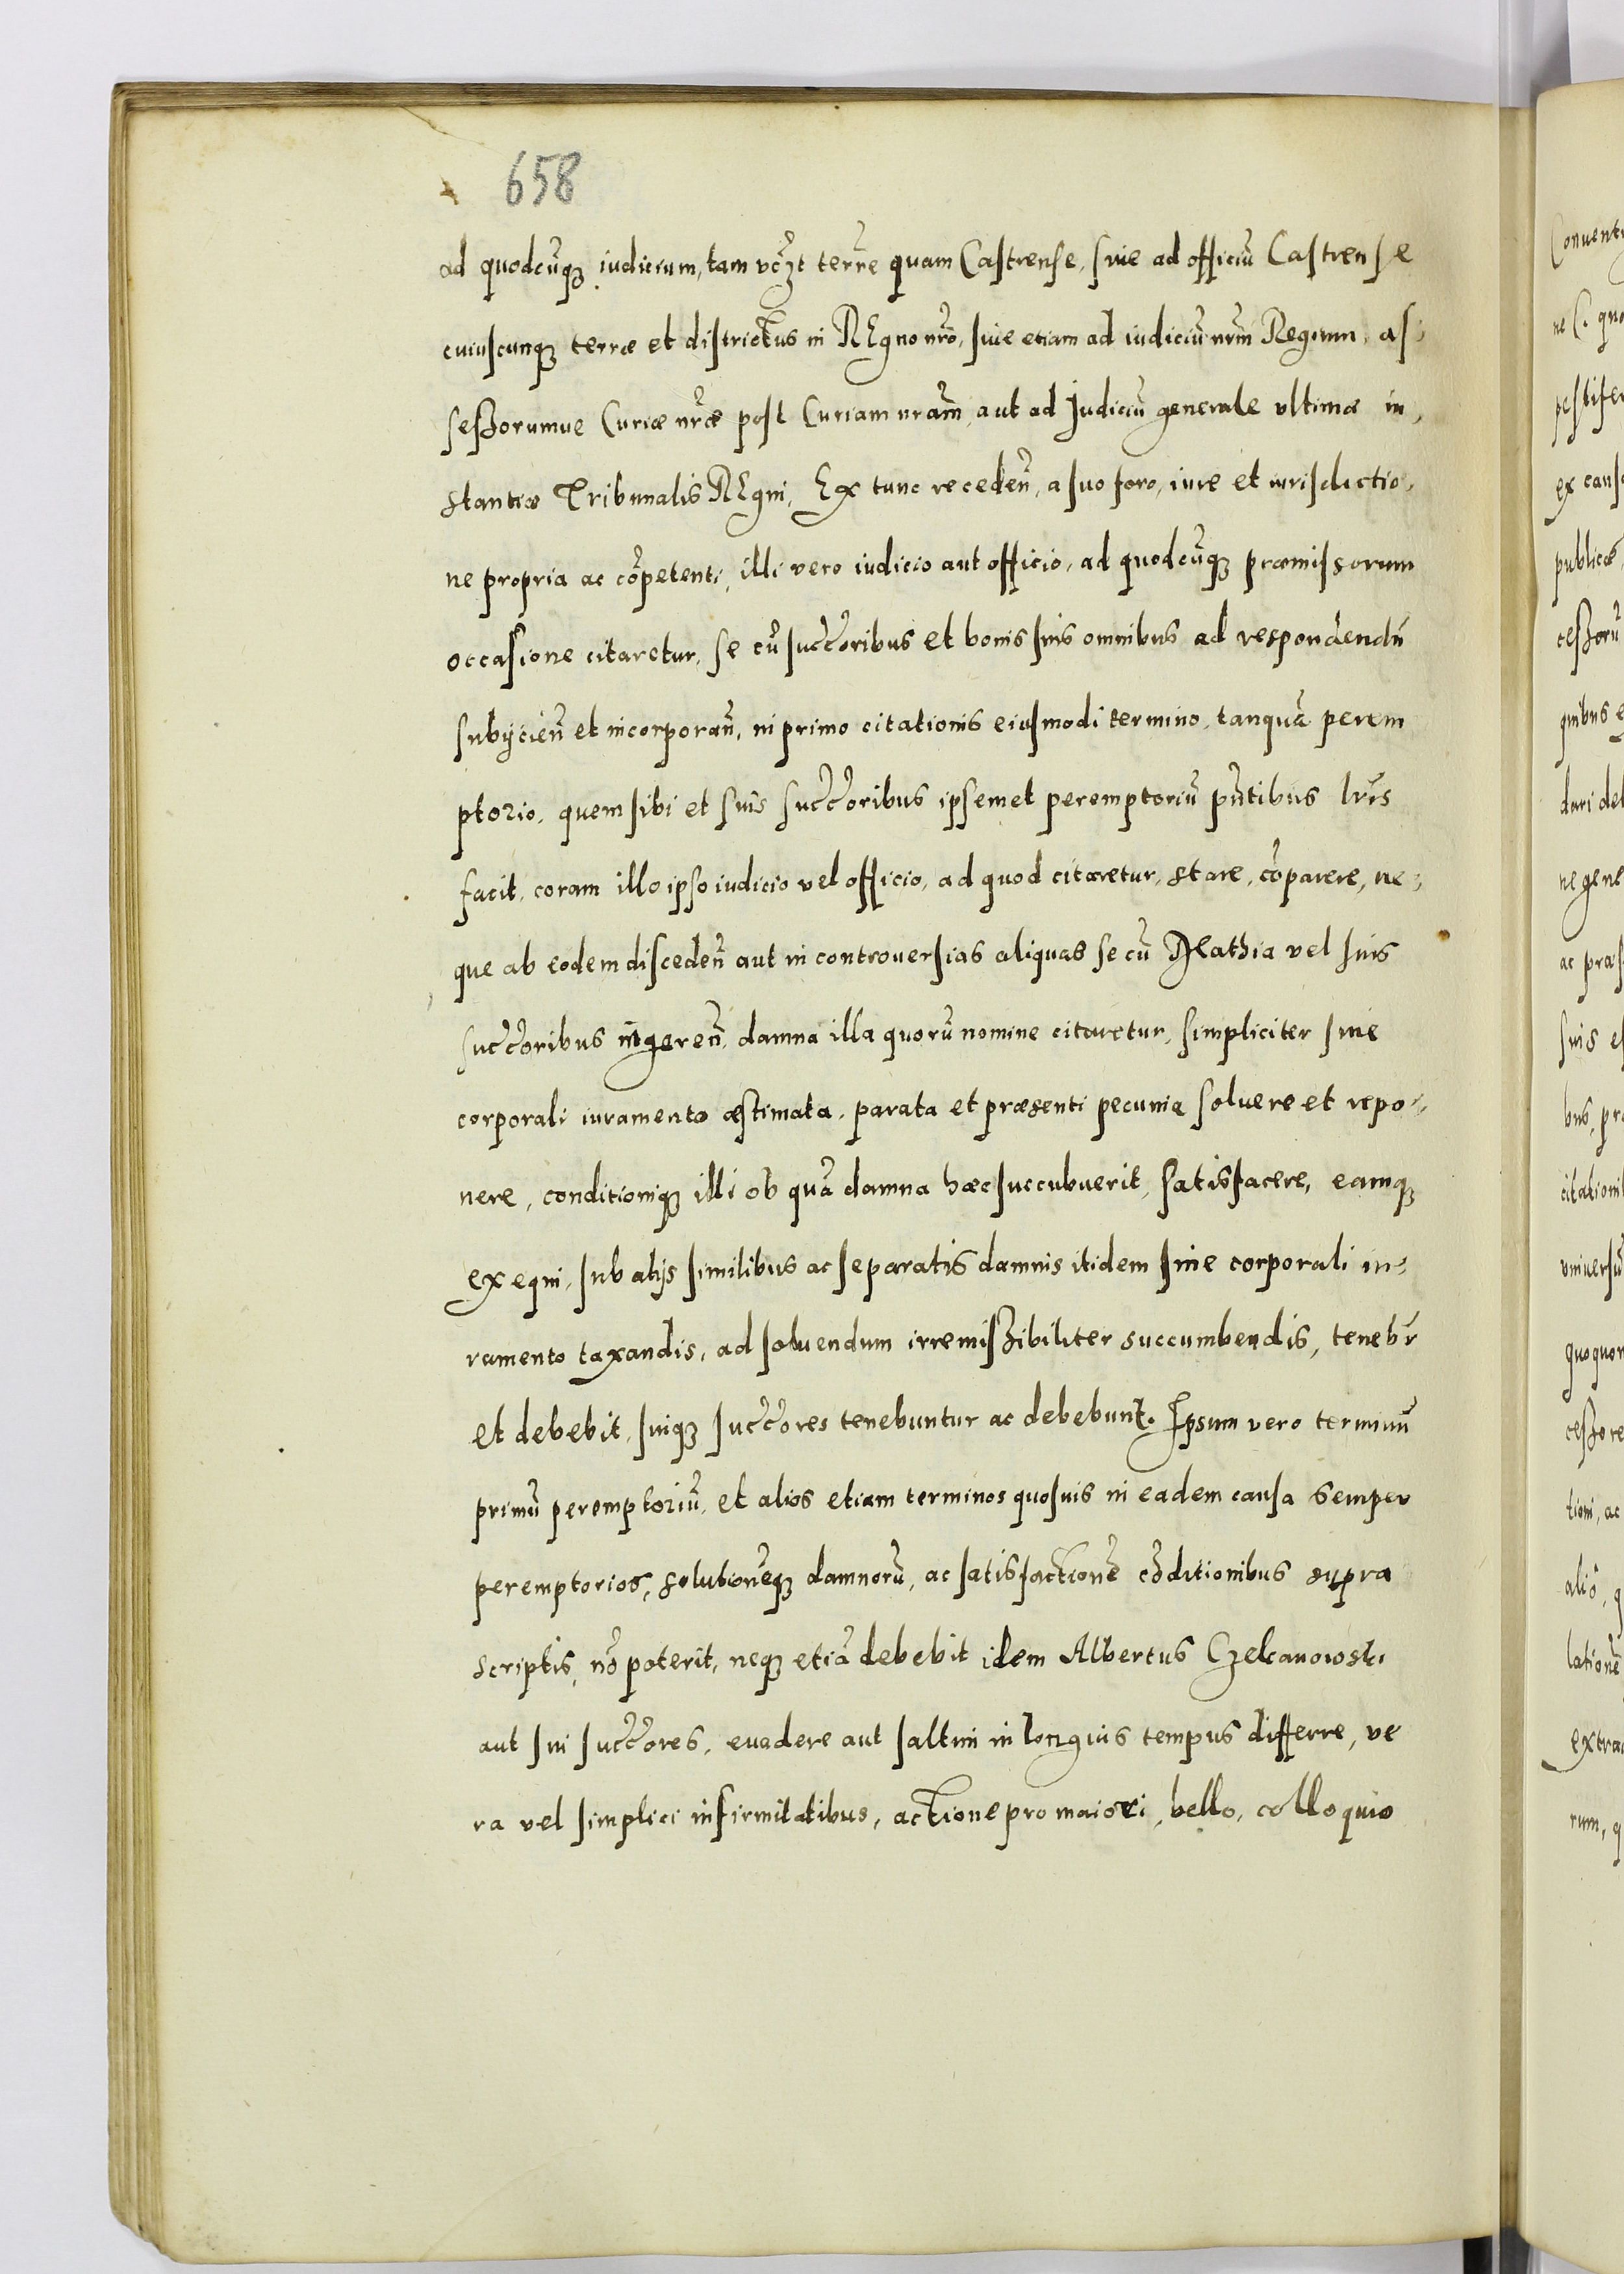 658
ad quodcūq; iudicium, tam vczt terrre quam Castrense, siue ad officiū Castrense
cuiuscunq; terræ et districtus in REgno nrō, siue etiam ad iudiciū nrm̄ Regium, as-
seßorumue Curiæ nrǣ post Curiam nrām, aut ad Judiciū generale vltimæ in-
stantiæ Tribunalis REgni, Ex tunc receden̄, a suo foro, iure et iurisdictio-
ne propria ac cōpetenti, illi vero iudicio aut officio, ad quodcūq; præmissorum
occasione citaretur, se cū succōribus et bonis suis omnibus ad respondendū
subijcien̄ et incorporan̄, in primo citationis eiusmodi termino, tanquā perem
ptorio, quem sibi et suis succōribus ipsemet peremptoriū pn̄tibus lrīs
facit, coram illo ipso iudicio vel officio, ad quod citaretur, stare, cōparere, ne-
que ab eodem disceden̄ aut in controuersias aliquas se cū Mathia vel suis
succōribus ingeren̄, damna illa quorū nomine citaretur, simpliciter sine
corporali iuramento æstimata, parata et præsenti pecunia soluere et repo-
nere, conditioniq; illi ob quā damna hæc succubuerit, satisfacere, eamq;
exequi, sub alijs similibus ac separatis damnis itidem sine corporali iu-
ramento taxandis, ad soluendum irremißibiliter succumbendis, teneb̄r
et debebit, suiq; succōres tenebuntur ac debebunt. Ipsum vero terminū
primū peremptoriū, et alios etiam terminos quosuis in eadem causa semper
peremptorios, solutionēq; damnorū, ac satisfactionē cōditionibus supra
scriptis, nō poterit, neq; etiā debebit idem Albertus Czelcanowski
aut sui succōres, euadere aut saltim in longius tempus differre, ve
ra vel simplici infirmitatibus, actione pro maiori, bello, colloquio
Conuent
ne C. quo
pestifer
ex caus
publicæ
ceßorū
quibus e
dari deb
ne gene
ac præs
suis e
bus, pr
citationi
vniuersū
quoquom
ceßore
tioni, ac
aliō, q
lationē
extra
rum, q